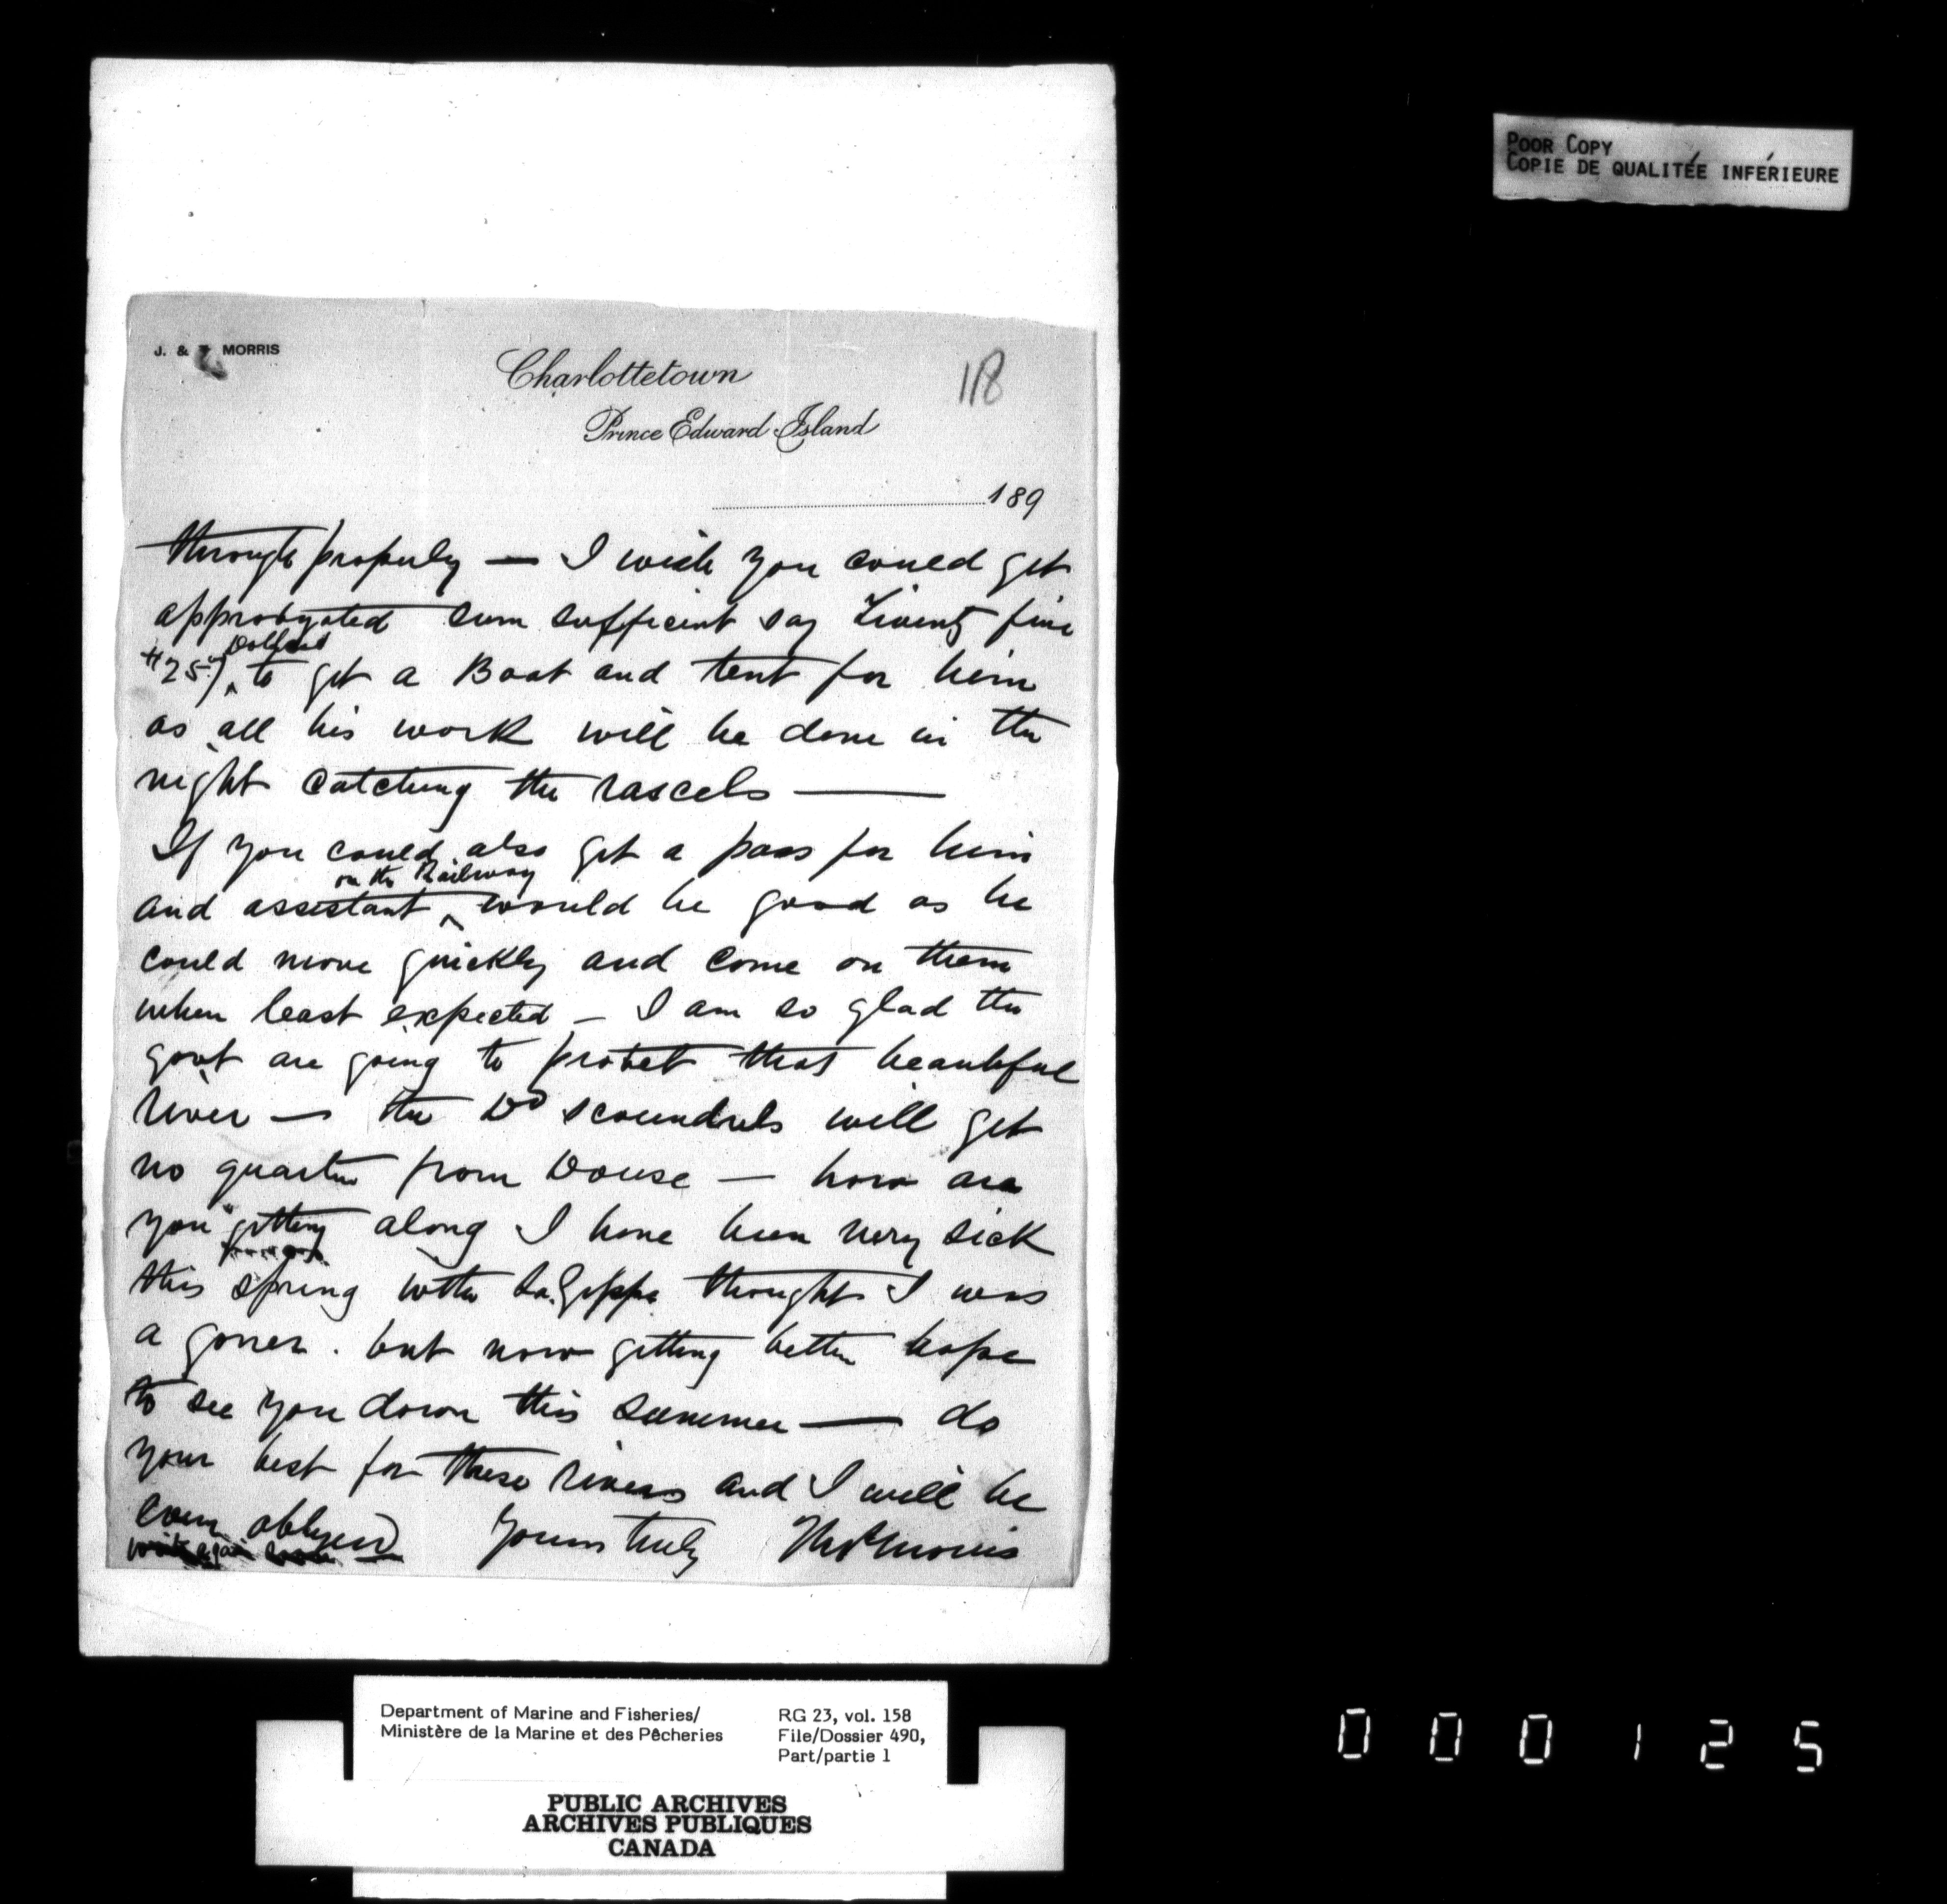 POOR COPY
COPIE DE QUALITÉE INFÉRIEURE
J. & MORRIS
Charlottetown
118
Prince Edward Island
189
through properly — I wish you could get
approbyated sum sufficient say Twenty five
$25) Dollars to get a Boat and tent for him
as all his work will be done in the
night catching the rascels —
If you could also get a pass for him
on the Railway
and assistant ^ would be good as he
could move quickly and come on them
when least expected – I am so glad the
govt are going to protect that beautiful
river — the Dd scoundrels will get
no quarter from Douse — how are
you getting along I have been very sick
this spring with La Grippe thought I was
a goner. but now getting better hope
to see you down this summer — do
your best for these rivers and I will be
ever obliged Yours truly Morris
again
Department of Marine and Fisheries/
Ministère de la Marine et des Pêcheries
RG 23, vol. 158
File/Dossier 490,
Part/partie 1
PUBLIC ARCHIVES
ARCHIVES PUBLIQUES
CANADA
000125